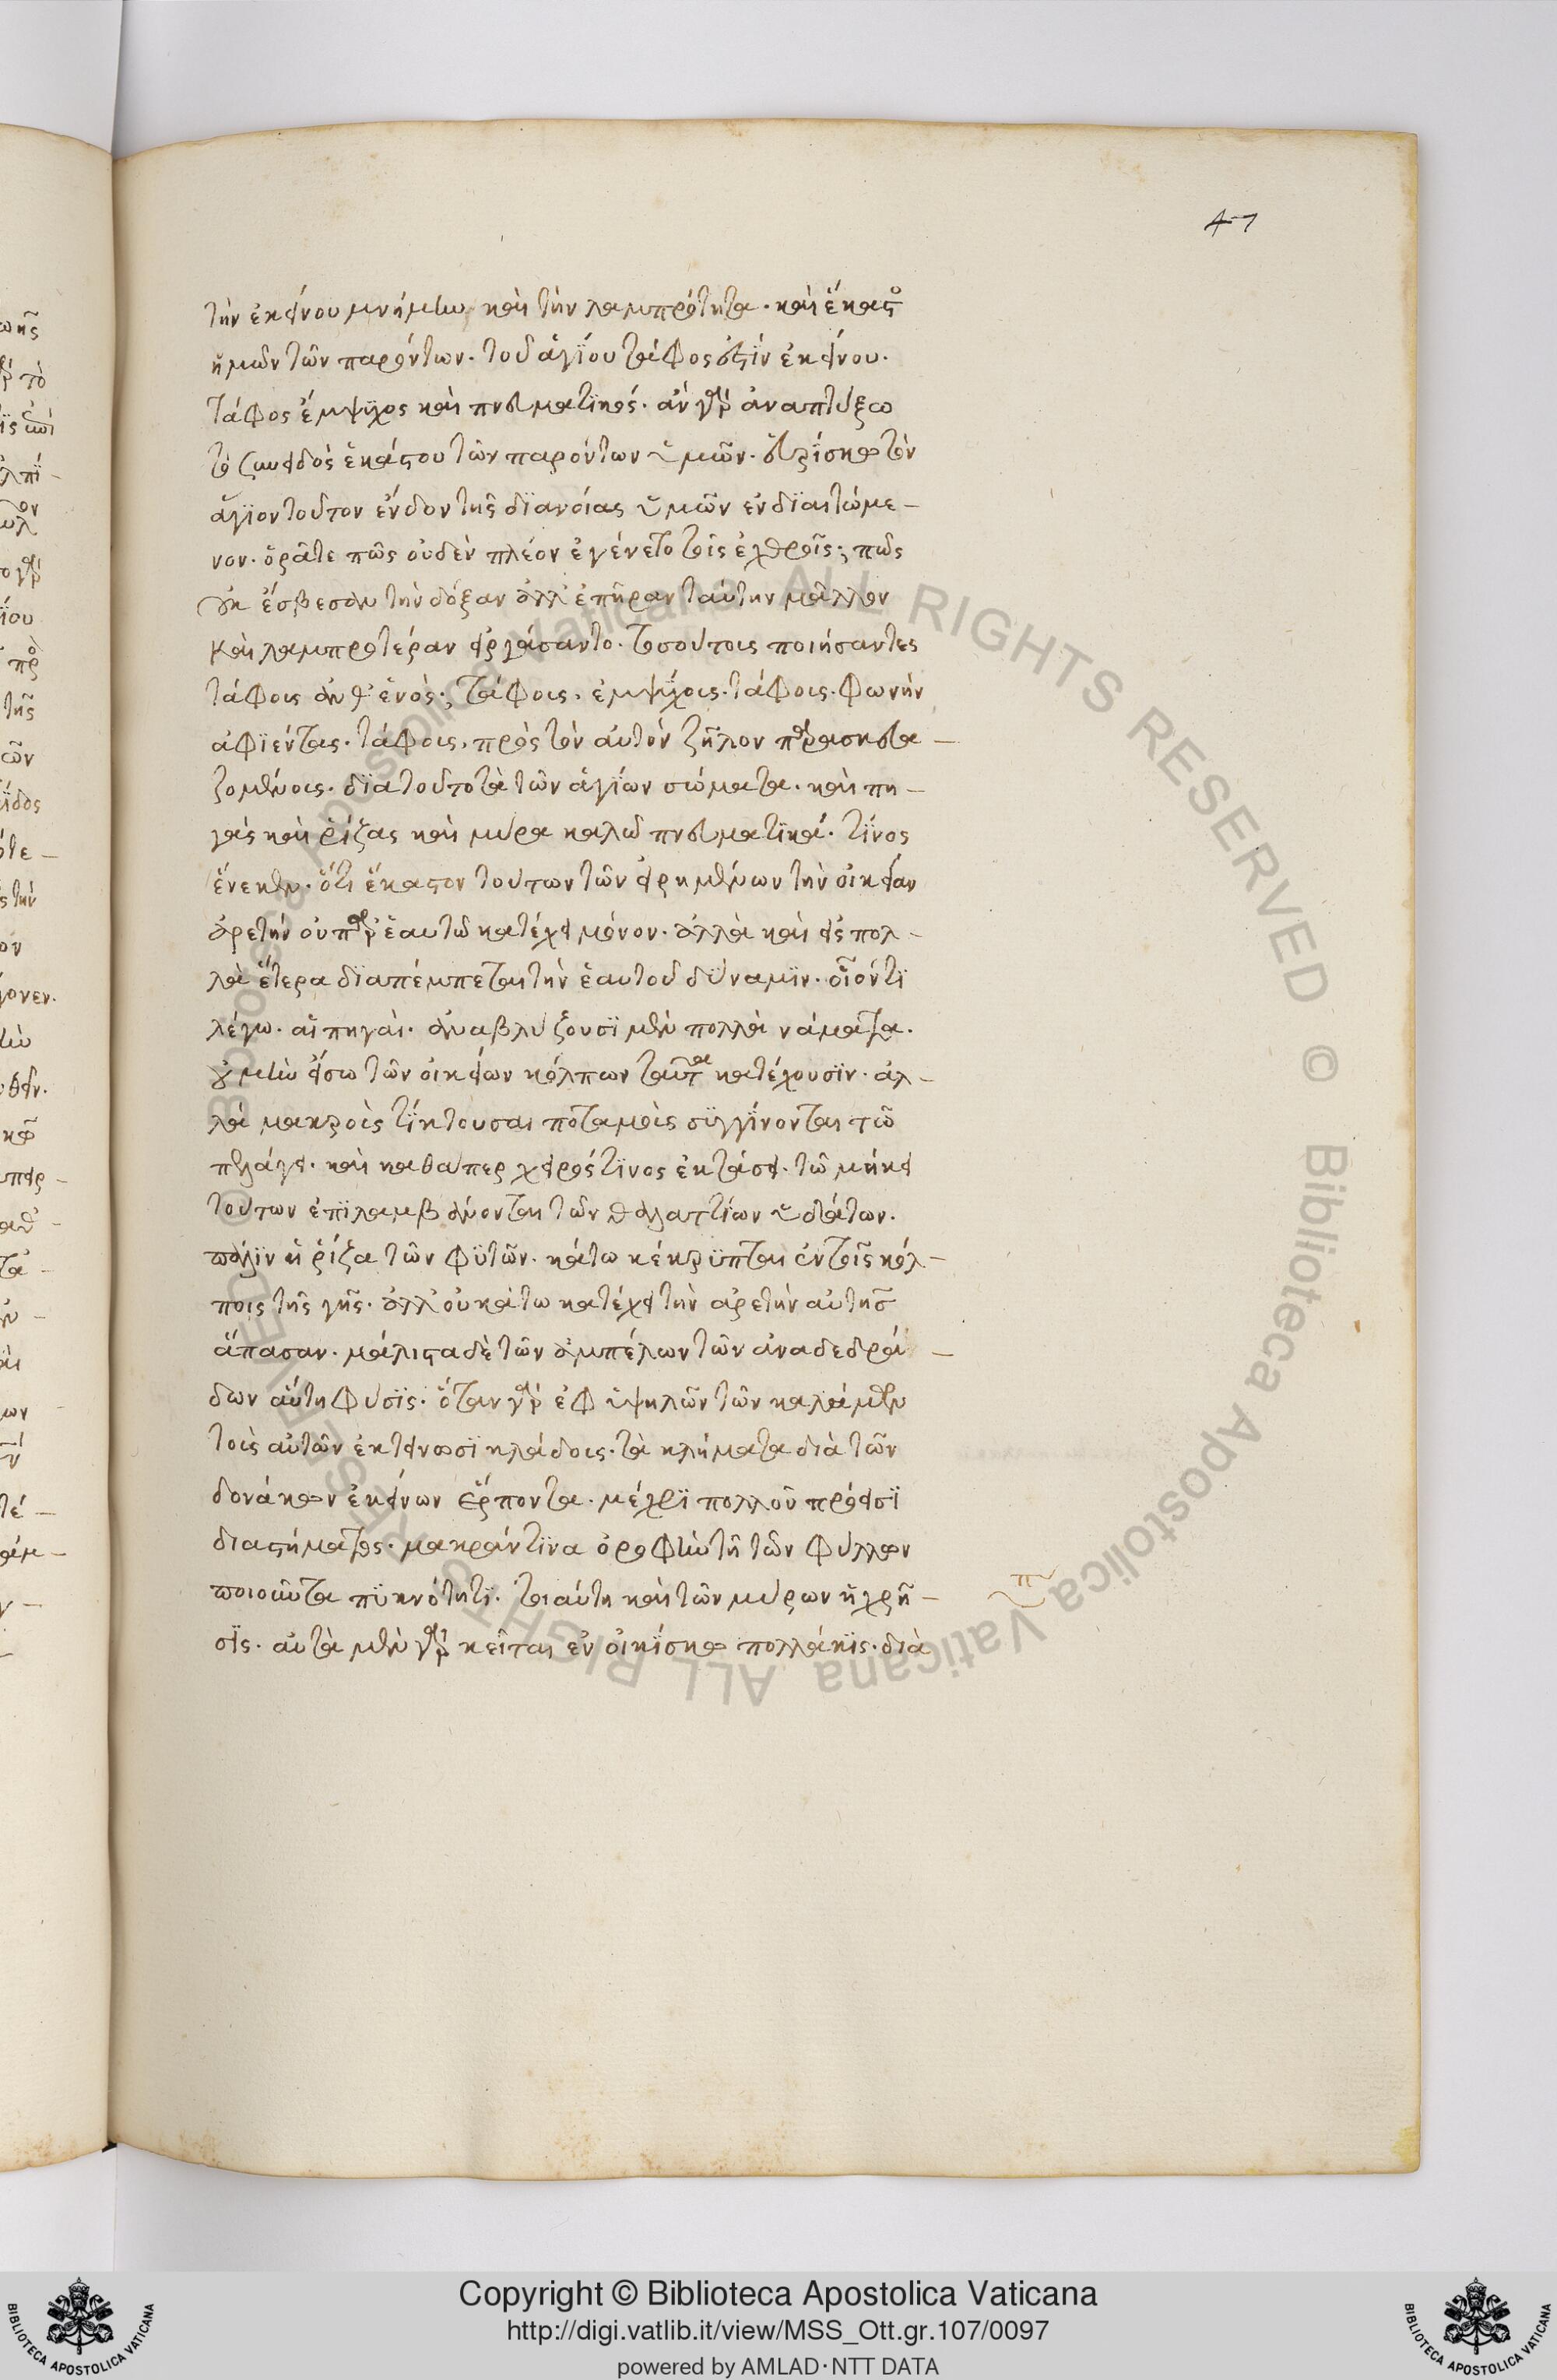 47
τὴν ἐκείνου μνήμην καὶ τὴν λαμπρότητα· καὶ ἕκαστο
ἡμῶν τῶν παρόντων· τοῦ ἁγΐου τάφος ἐστΐν ἐκείνου·
τάφος ἔμψϋχος καὶ πνευματϊκός· ἂν γὰρ ἀναπτύξω
τὸ συνειδὸς ἑκάστου τῶν παρόντων ὑμῶν· εὑρΐσκω τὸν
ἅγϊον τοῦτον ἔνδον τῆς δϊανοίας ὑμῶν ἐνδϊαιτώμε-
νον· ὁρᾶτε πῶς οὐδὲν πλέον ἐγένετο τοῖς ἐχθροῖς; πῶς
οὐκ ἔσβεσαν τὴν δόξαν ἀλλ' ἐπῆραν ταύτην μᾶλλον
καὶ λαμπροτέραν εἰργάσαντο· τοσούτοις ποιήσαντες
τάφοις ἀνθ' ἑνός; τάφοις, ἐμψΰχοις· τάφοις· φωνὴν
ἀφϊέντας· τάφοις, πρὸς τὸν αὐτὸν ζῆλον παρασκευα-
ζομένοις· δϊατοῦτο τὰ τῶν ἁγΐων σώματα· καὶ πη-
γὰς καὶ ῥίζας καὶ μύρα καλῶ πνευματϊκά· τΐνος
ἕνεκεν· ὅτι ἕκαστον τούτων τῶν εἰρημένων τὴν οἰκείαν
ἀρετὴν οὐ παρ' ἑαυτῶ κατέχει μόνον· ἀλλὰ καὶ εἰς πολ-
λὰ ἕτερα δϊαπέμπεται τὴν ἑαυτοῦ δύναμϊν· οἷόν τϊ
λέγω· αἱ πηγαὶ· ἀναβλύζουσϊ μὲν πολλὰ νάματα·
οὐ μὴν εἴσω τῶν οἰκείων κόλπων ταῦτα κατέχουσϊν· ἀλ-
λὰ μακροὺς τΐκτουσαι ποταμοὺς σϋγγΐνονται τῶ
πελάγει· καὶ καθάπερ χειρός τϊνος ἐκτάσει· τῶ μήκει
τούτων ἐπϊλαμβάνονται τῶν θαλαττΐων ὑδάτων·
πάλϊν ἡ ῥίζα τῶν φϋτῶν· κάτω κέκρϋπται ἐν τοῖς κόλ-
ποις τῆς γῆς· ἀλλ' οὐ κάτω κατέχει τὴν ἀρετὴν αὐτῆς
ἅπασαν· μάλιστα δὲ τῶν ἀμπέλων τῶν ἀναδεδρά-
δων αὕτη φύσϊς· ὅταν γὰρ ἐφ ὑψηλῶν τῶν καλάμων
τοὺς αὐτῶν ἐκτείνωσϊ κλάδους· τὰ κλήματα διὰ τῶν
δονάκων ἐκείνων ἕρποντα· μέχρϊ πολλοῦ πρόεισϊ
διαστήματος· μακράν τϊνα ὀροφὴν τῆ τῶν φύλλων
ποιοῦντα πϋκνότητϊ· τοιαύτη καὶ τῶν μύρων ἡ χρῆ-
σϊς· αὐτὰ μὲν γὰρ κεῖται ἐν οἰκΐσκω πολλάκϊς· διὰ
Copyright © Biblioteca Apostolica Vaticana
http://digi.vatlib.it/view/MSS_Ott.gr.107/0097
powered by AMLAD·NTT DATA